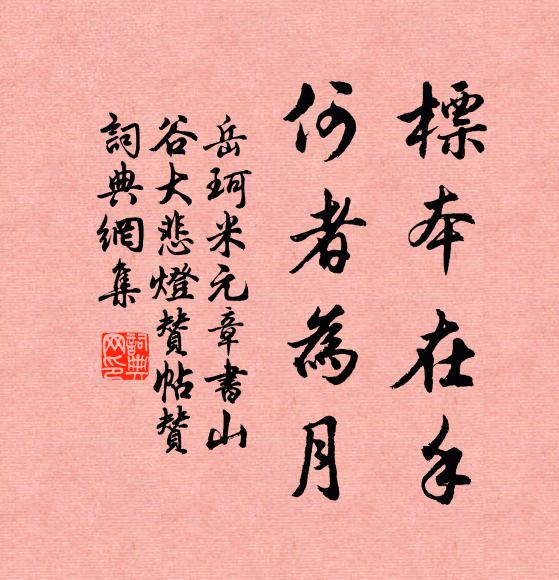 標本在手
何者為月
岳珂米元章書山
谷大悲燈贊帖贊
詞典網集
詞典
网印